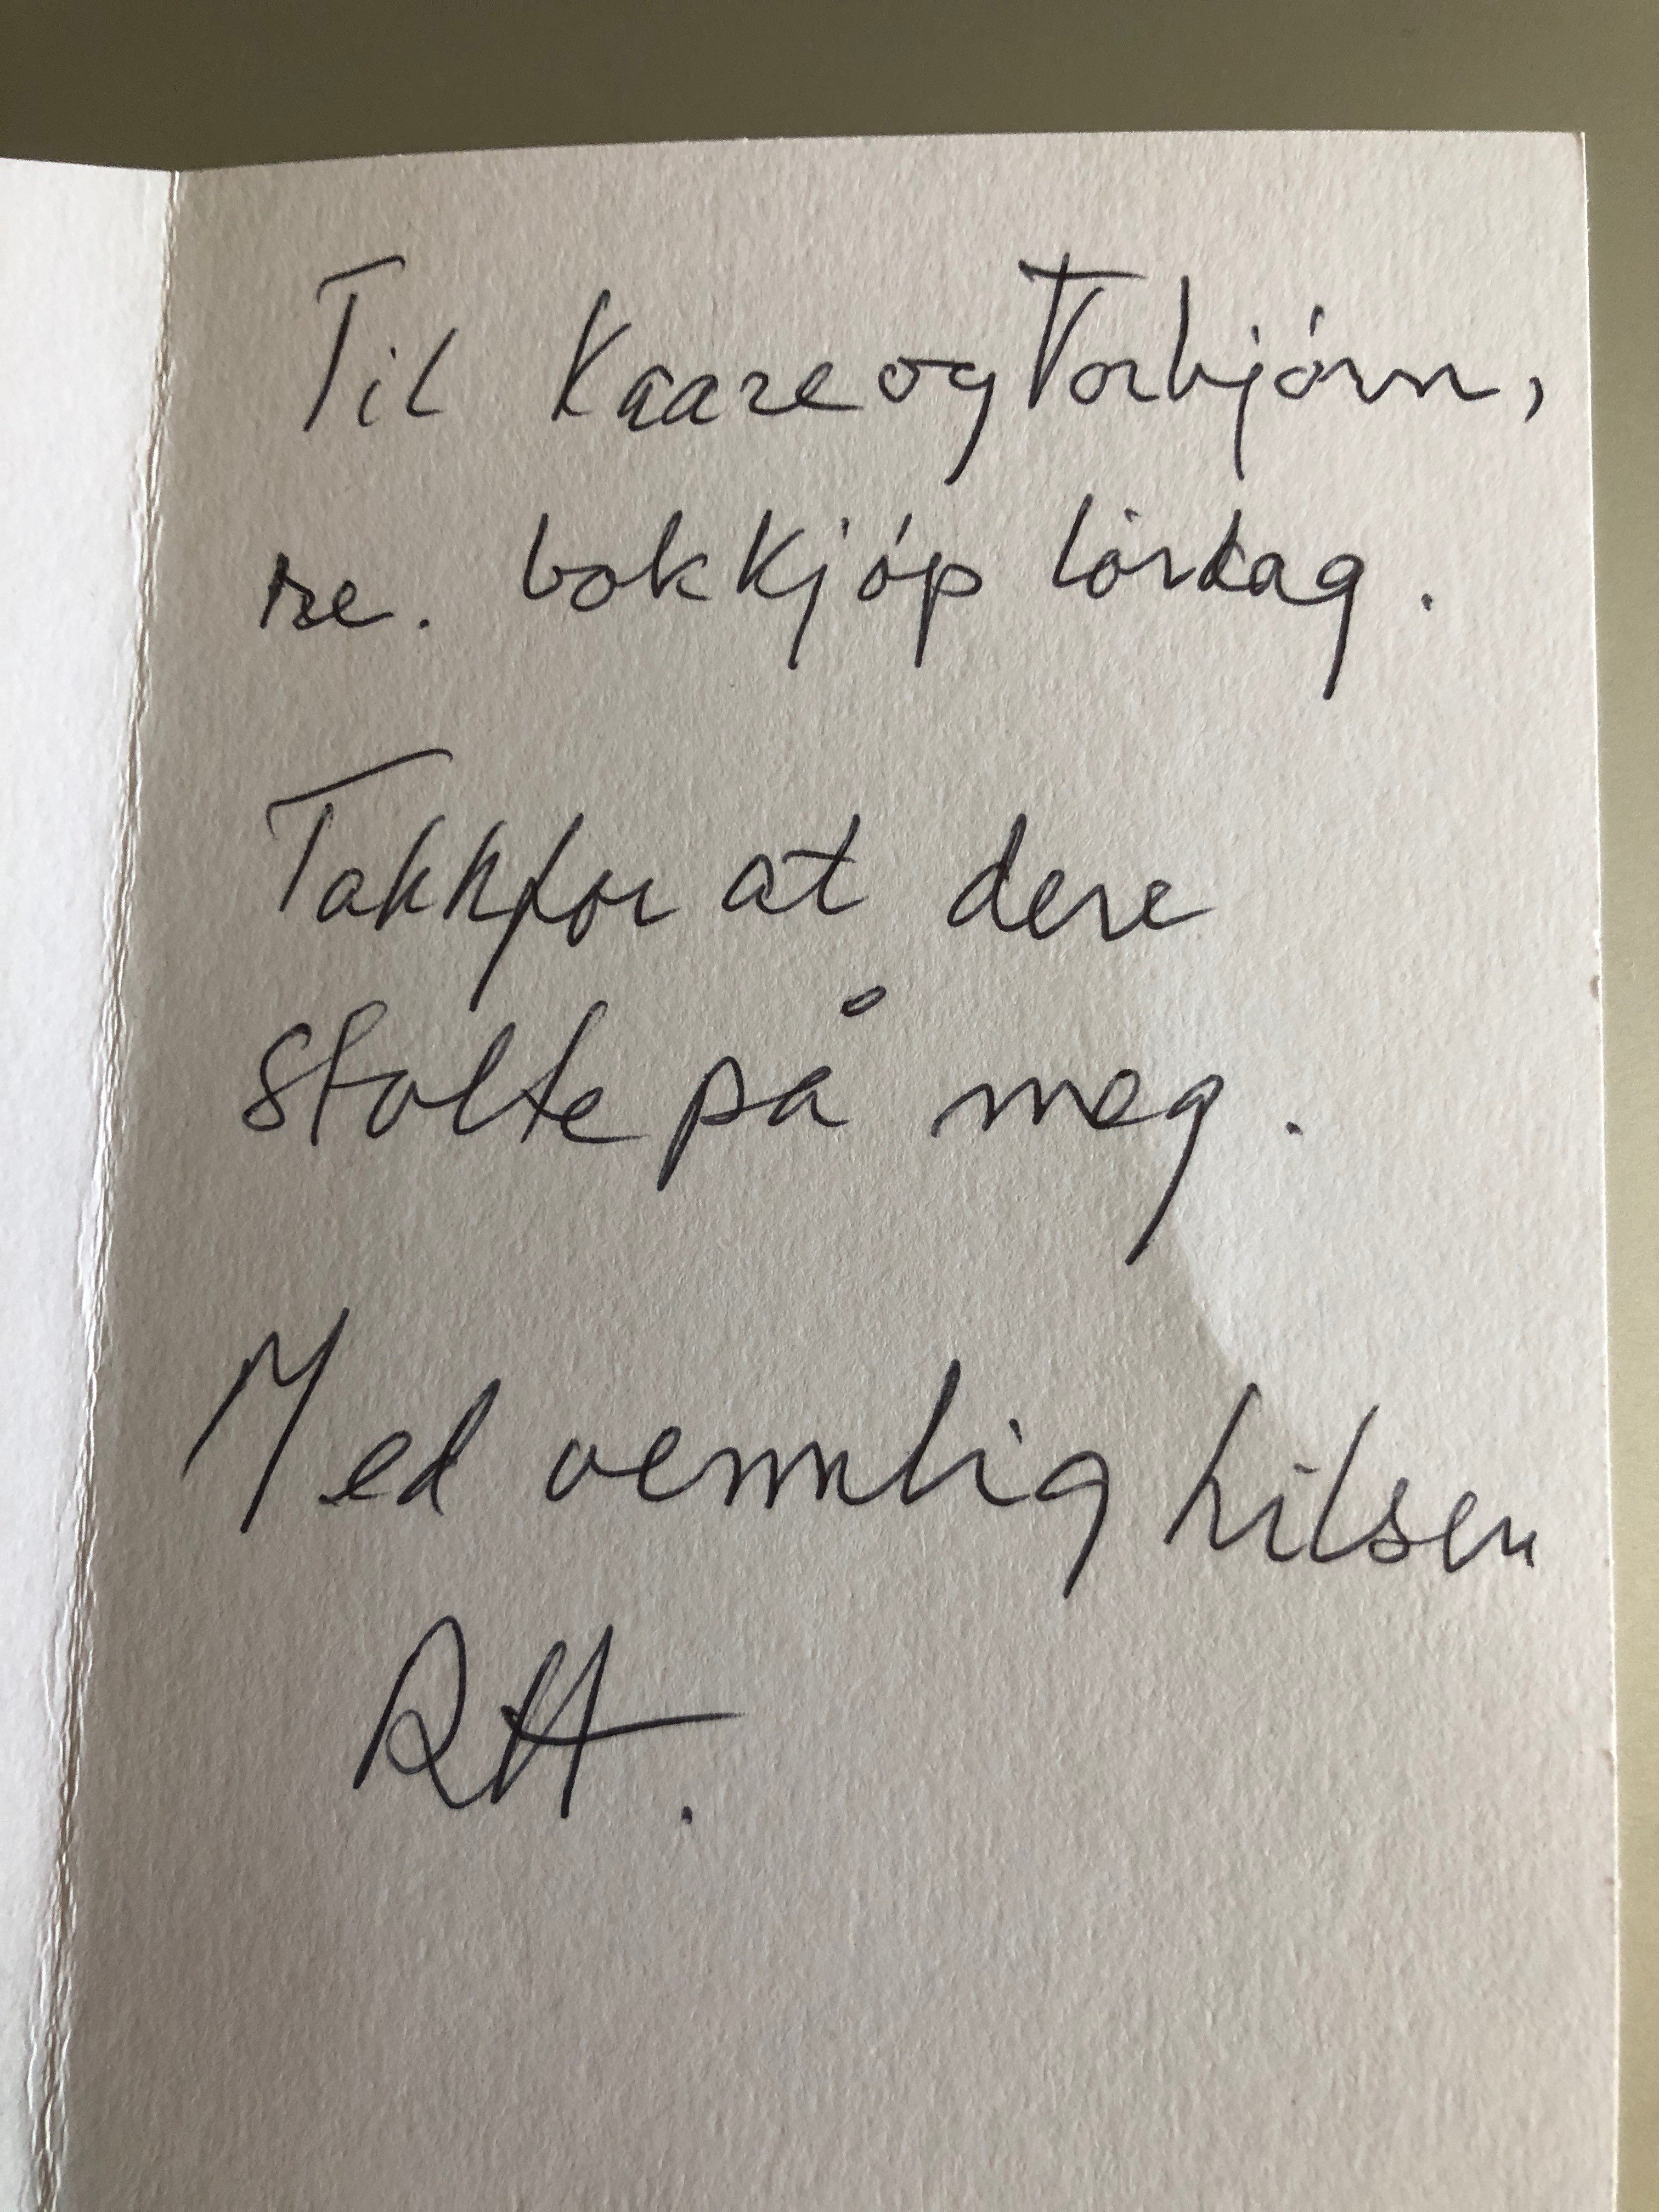 Til Kaare og Torbjørn,
re. bokkjøp lørdag.
Takk for at dere
stolte på meg.
Med vennlig hilsen
RH.